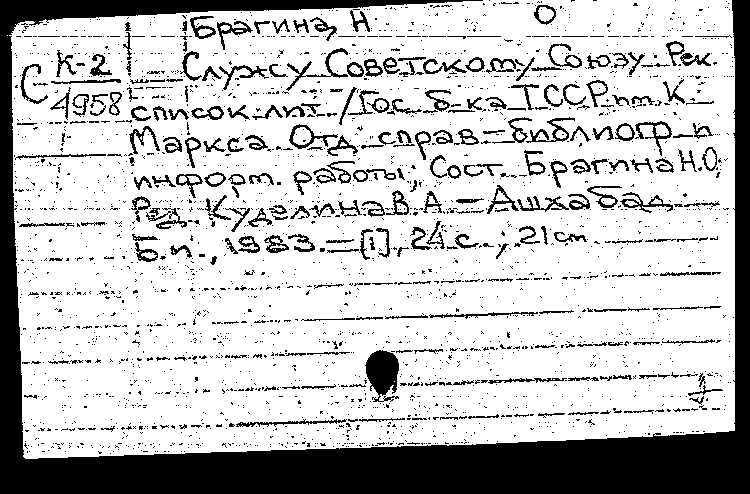 Брагина, Н О
С К-2
4958
Служу Советскому Союзу: Рек.
список лит / Гос. б-ка ТССР им. К.
Маркса. Отд. справ-библиогр и
информ. работы; Сост. Брагина Н.О;
Ред. Куделина В.А – Ашхабад:
Б.и., 1983. – [1], 24 с.; 21 cm